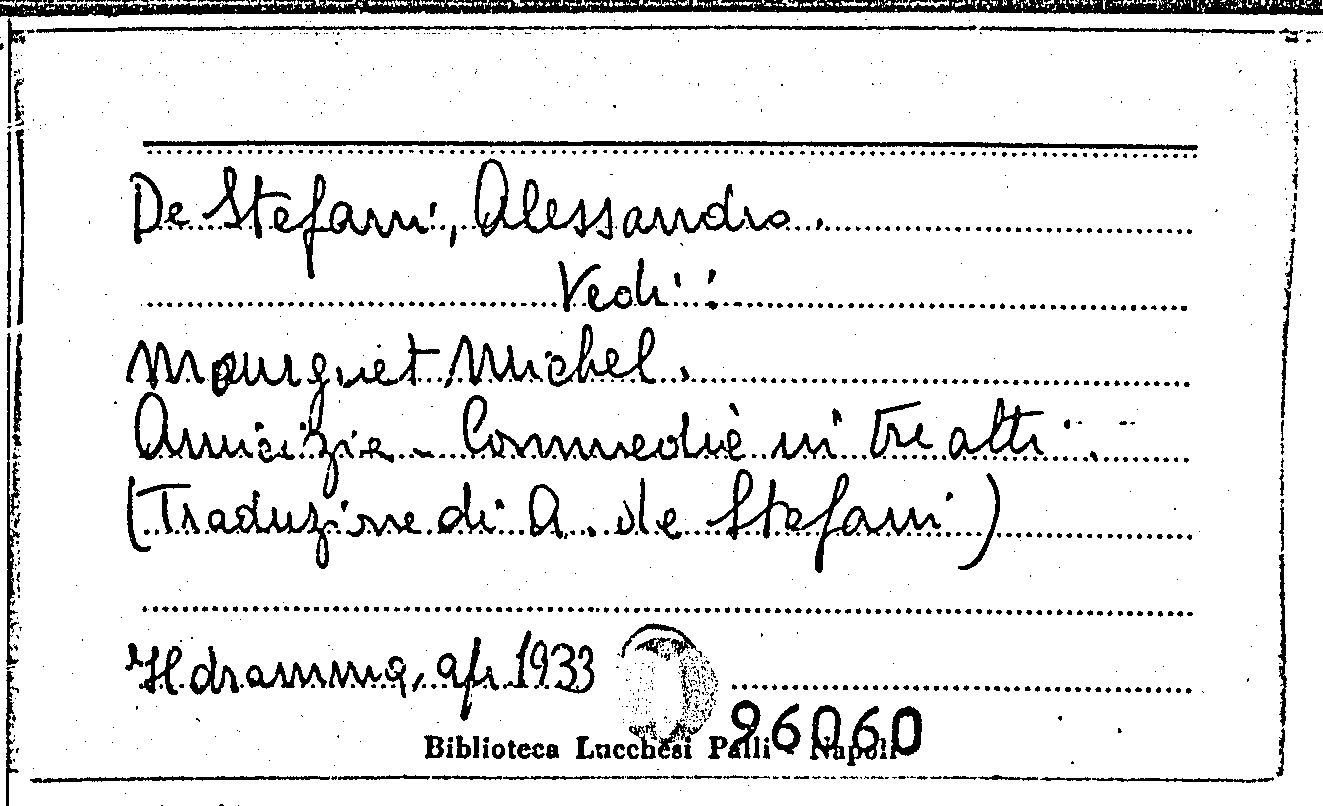 De Stefani, Alessandro.
Vedi:
Mourguet Michel.
Amicizia - Commedia in tre atti.
(Traduzione di A. de Stefani)
Il dramma, apr. 1933
96060
Biblioteca Lucchesi Palli - Napoli